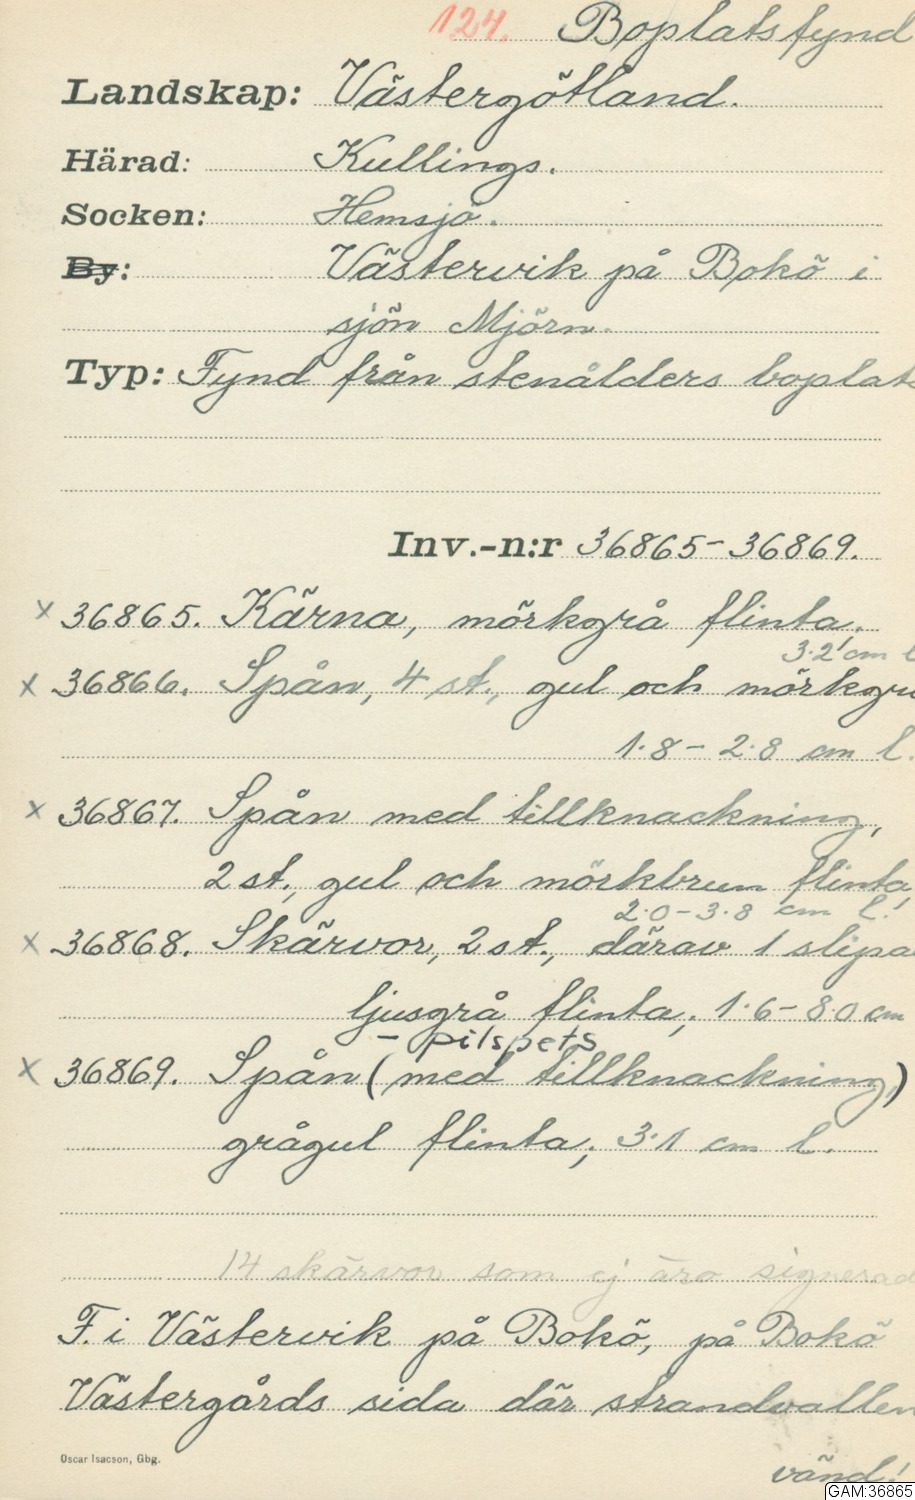 124. Boplatsfynd
Landskap: Västergötland.
Härad: Kullings.
Socken: Hemsjö.
By: Västervik på Bokö i
sjön Mjörn.
Typ: Fynd från stenålders boplats
Inv.-n:r 36865-36869.
x 36865. Kärna, mörkgrå flinta.
3.2 cm l
x 36866. Spån, 4 st., gul och mörkgrå
1.8-2.8 cm l.
x 36867. Spån med tillknackning,
2 st., gul och mörkbrun flinta
2.0-3.8 cm l.
x 36868. Skärvor, 2 st., därav 1 slipa
ljusgrå flinta, 1.6-8.0 cm
- pilspets
x 36869. Spån (med tillknackning,)
grågul flinta, 3.1 cm l.
14 skärvor som ej äro signerad
F. i Västervik på Bokö, på Bokö
Västergårds sida där strandvallen
Oscar Isacson, Gbg.
vänd!
GAM:36865